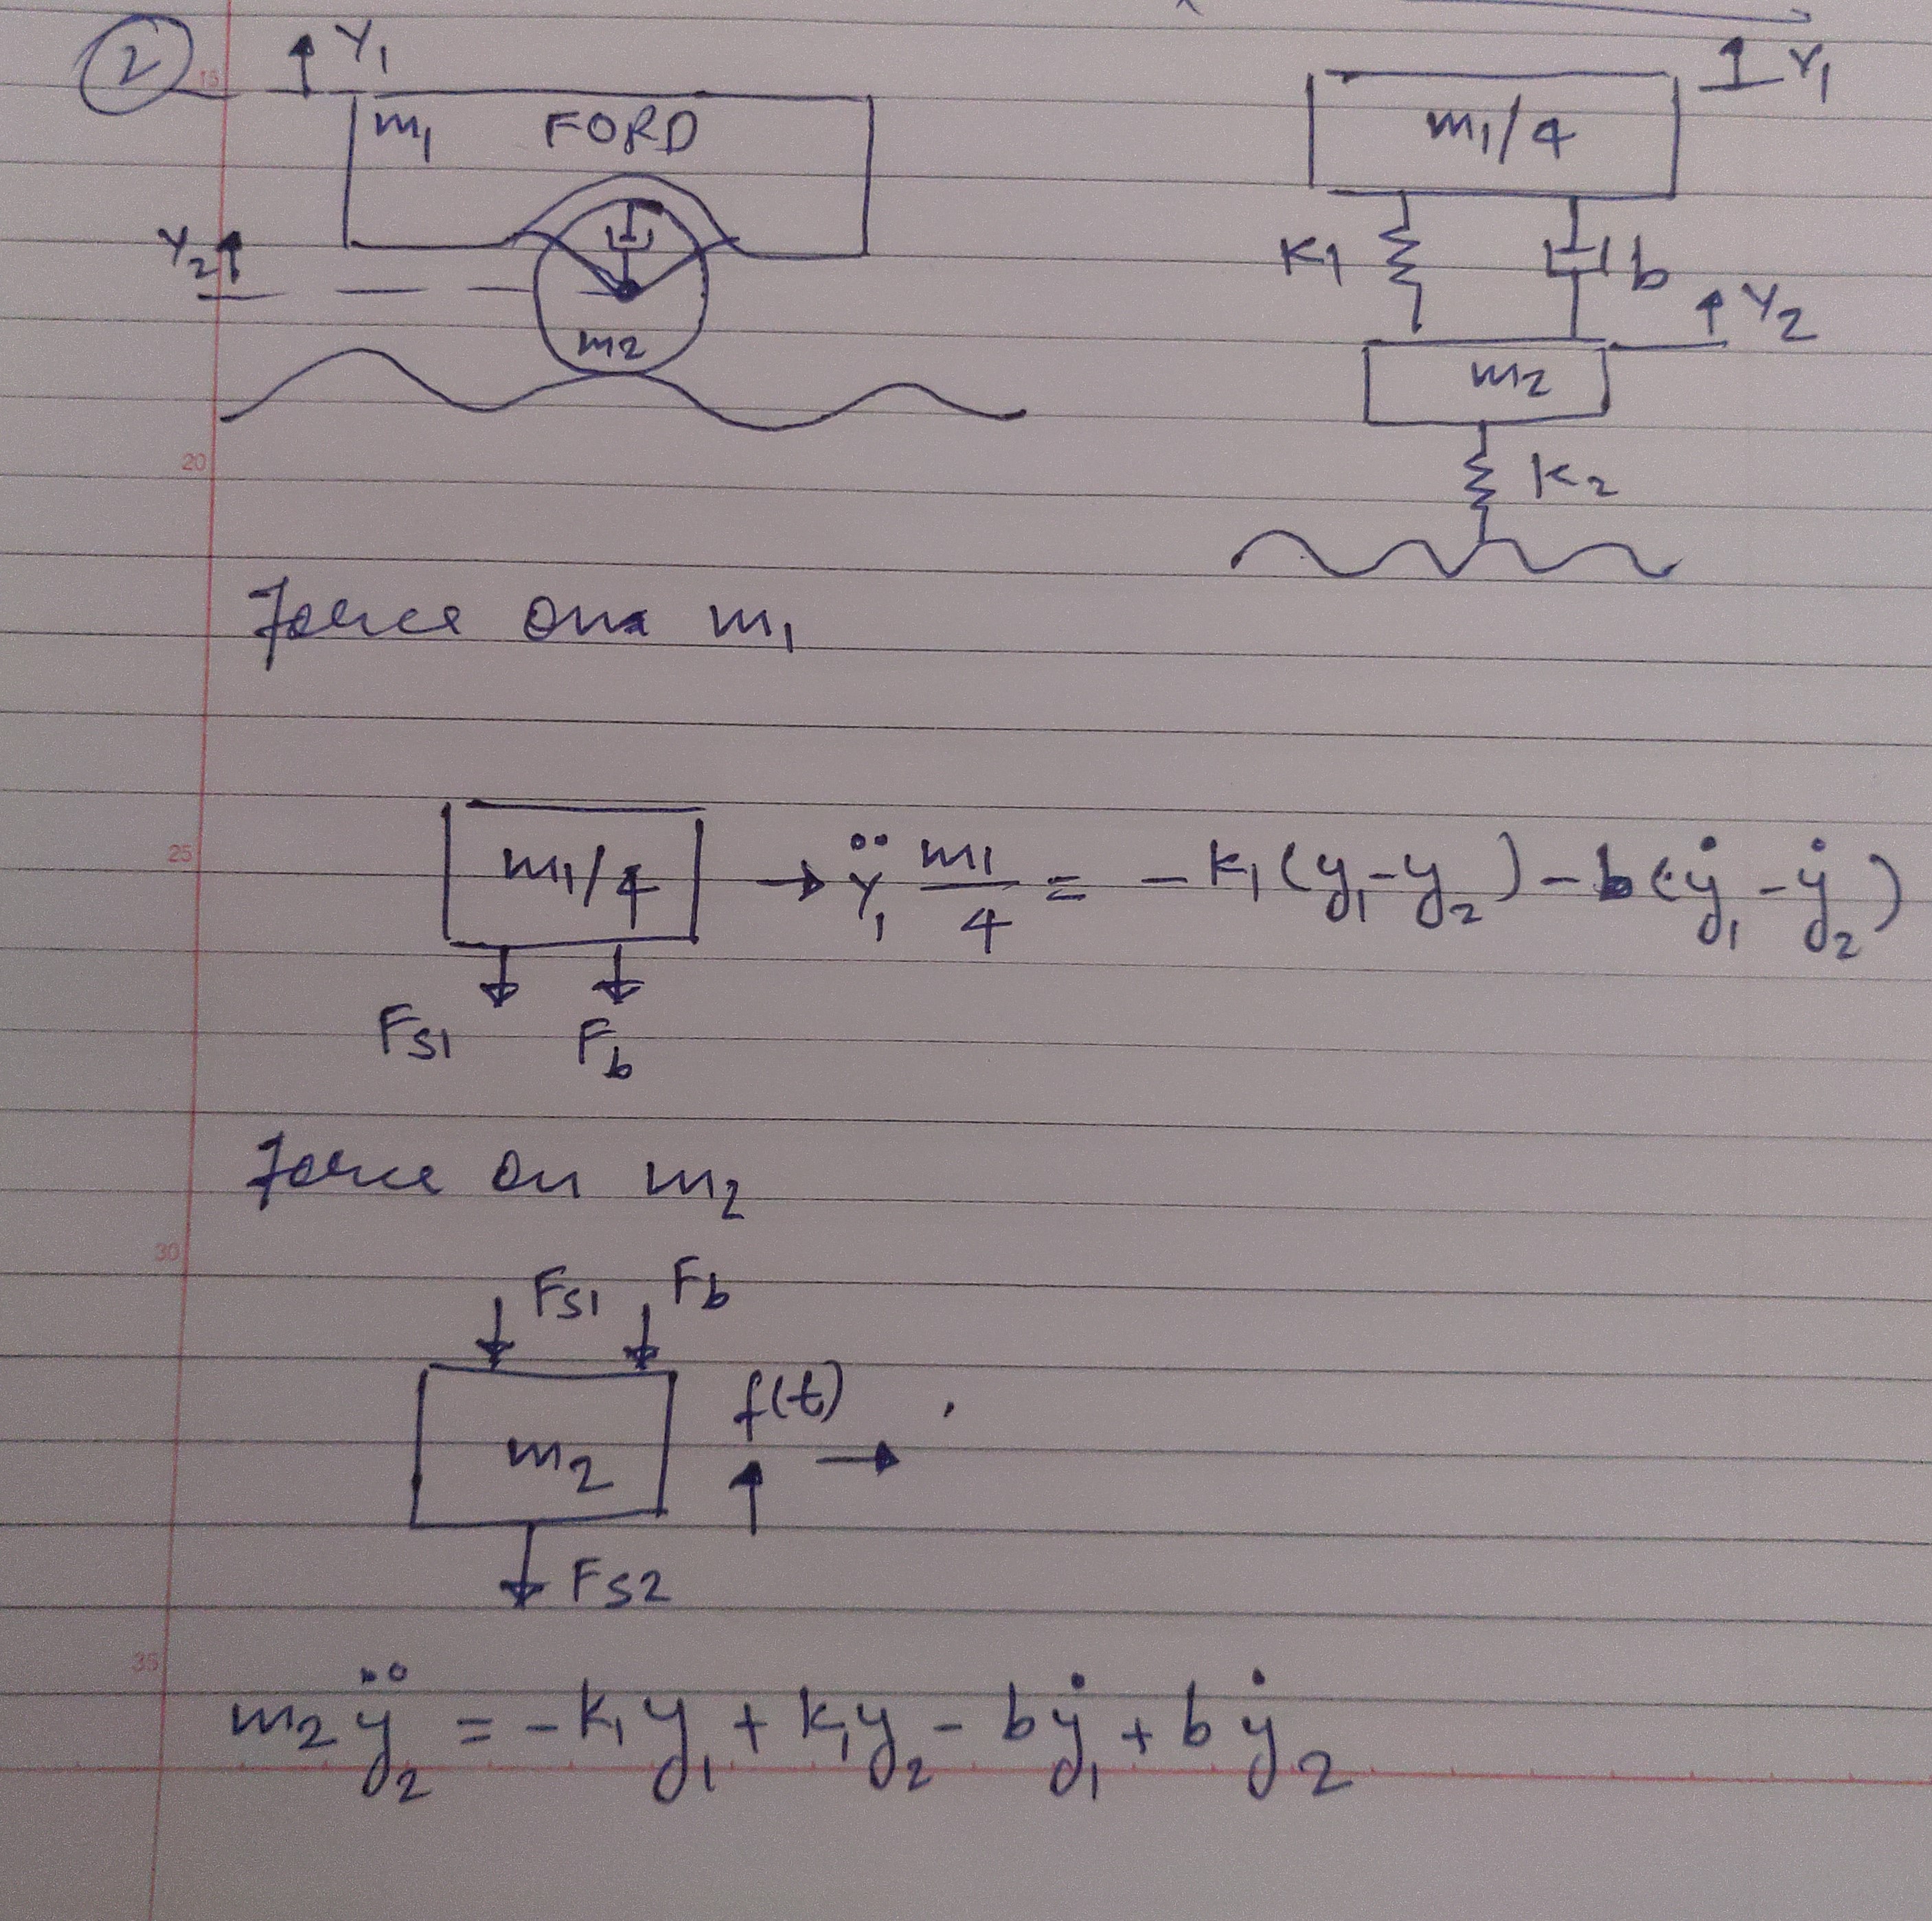 2
15
Y₁
m₁ FORD
Y₂
m₂
Y₁
m₁/4
K₁ b
Y₂
m₂
K₂
20
Force on m₁
25
m₁/4 → Ÿ₁ m₁/4 = -k₁(y₁-y₂) - b(ẏ₁-ẏ₂)
Fs1 Fb
Force on m₂
30
Fs1 Fb
m₂ f(t) →
Fs2
35
m₂ÿ₂ = -k₁y₁ + k₁y₂ - bẏ₁ + bẏ₂